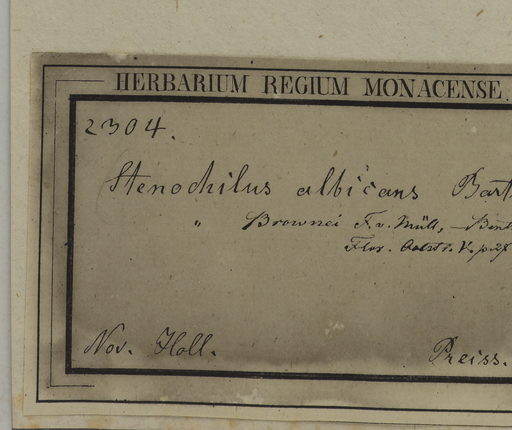 HERBARIUM REGIUM MONACENSE.
2304.
Stenochilus albicans Bart
" Brownei F. v. Müll, Bent
Flor. Austr. V. p. 27
Nov. Holl. Preiss.